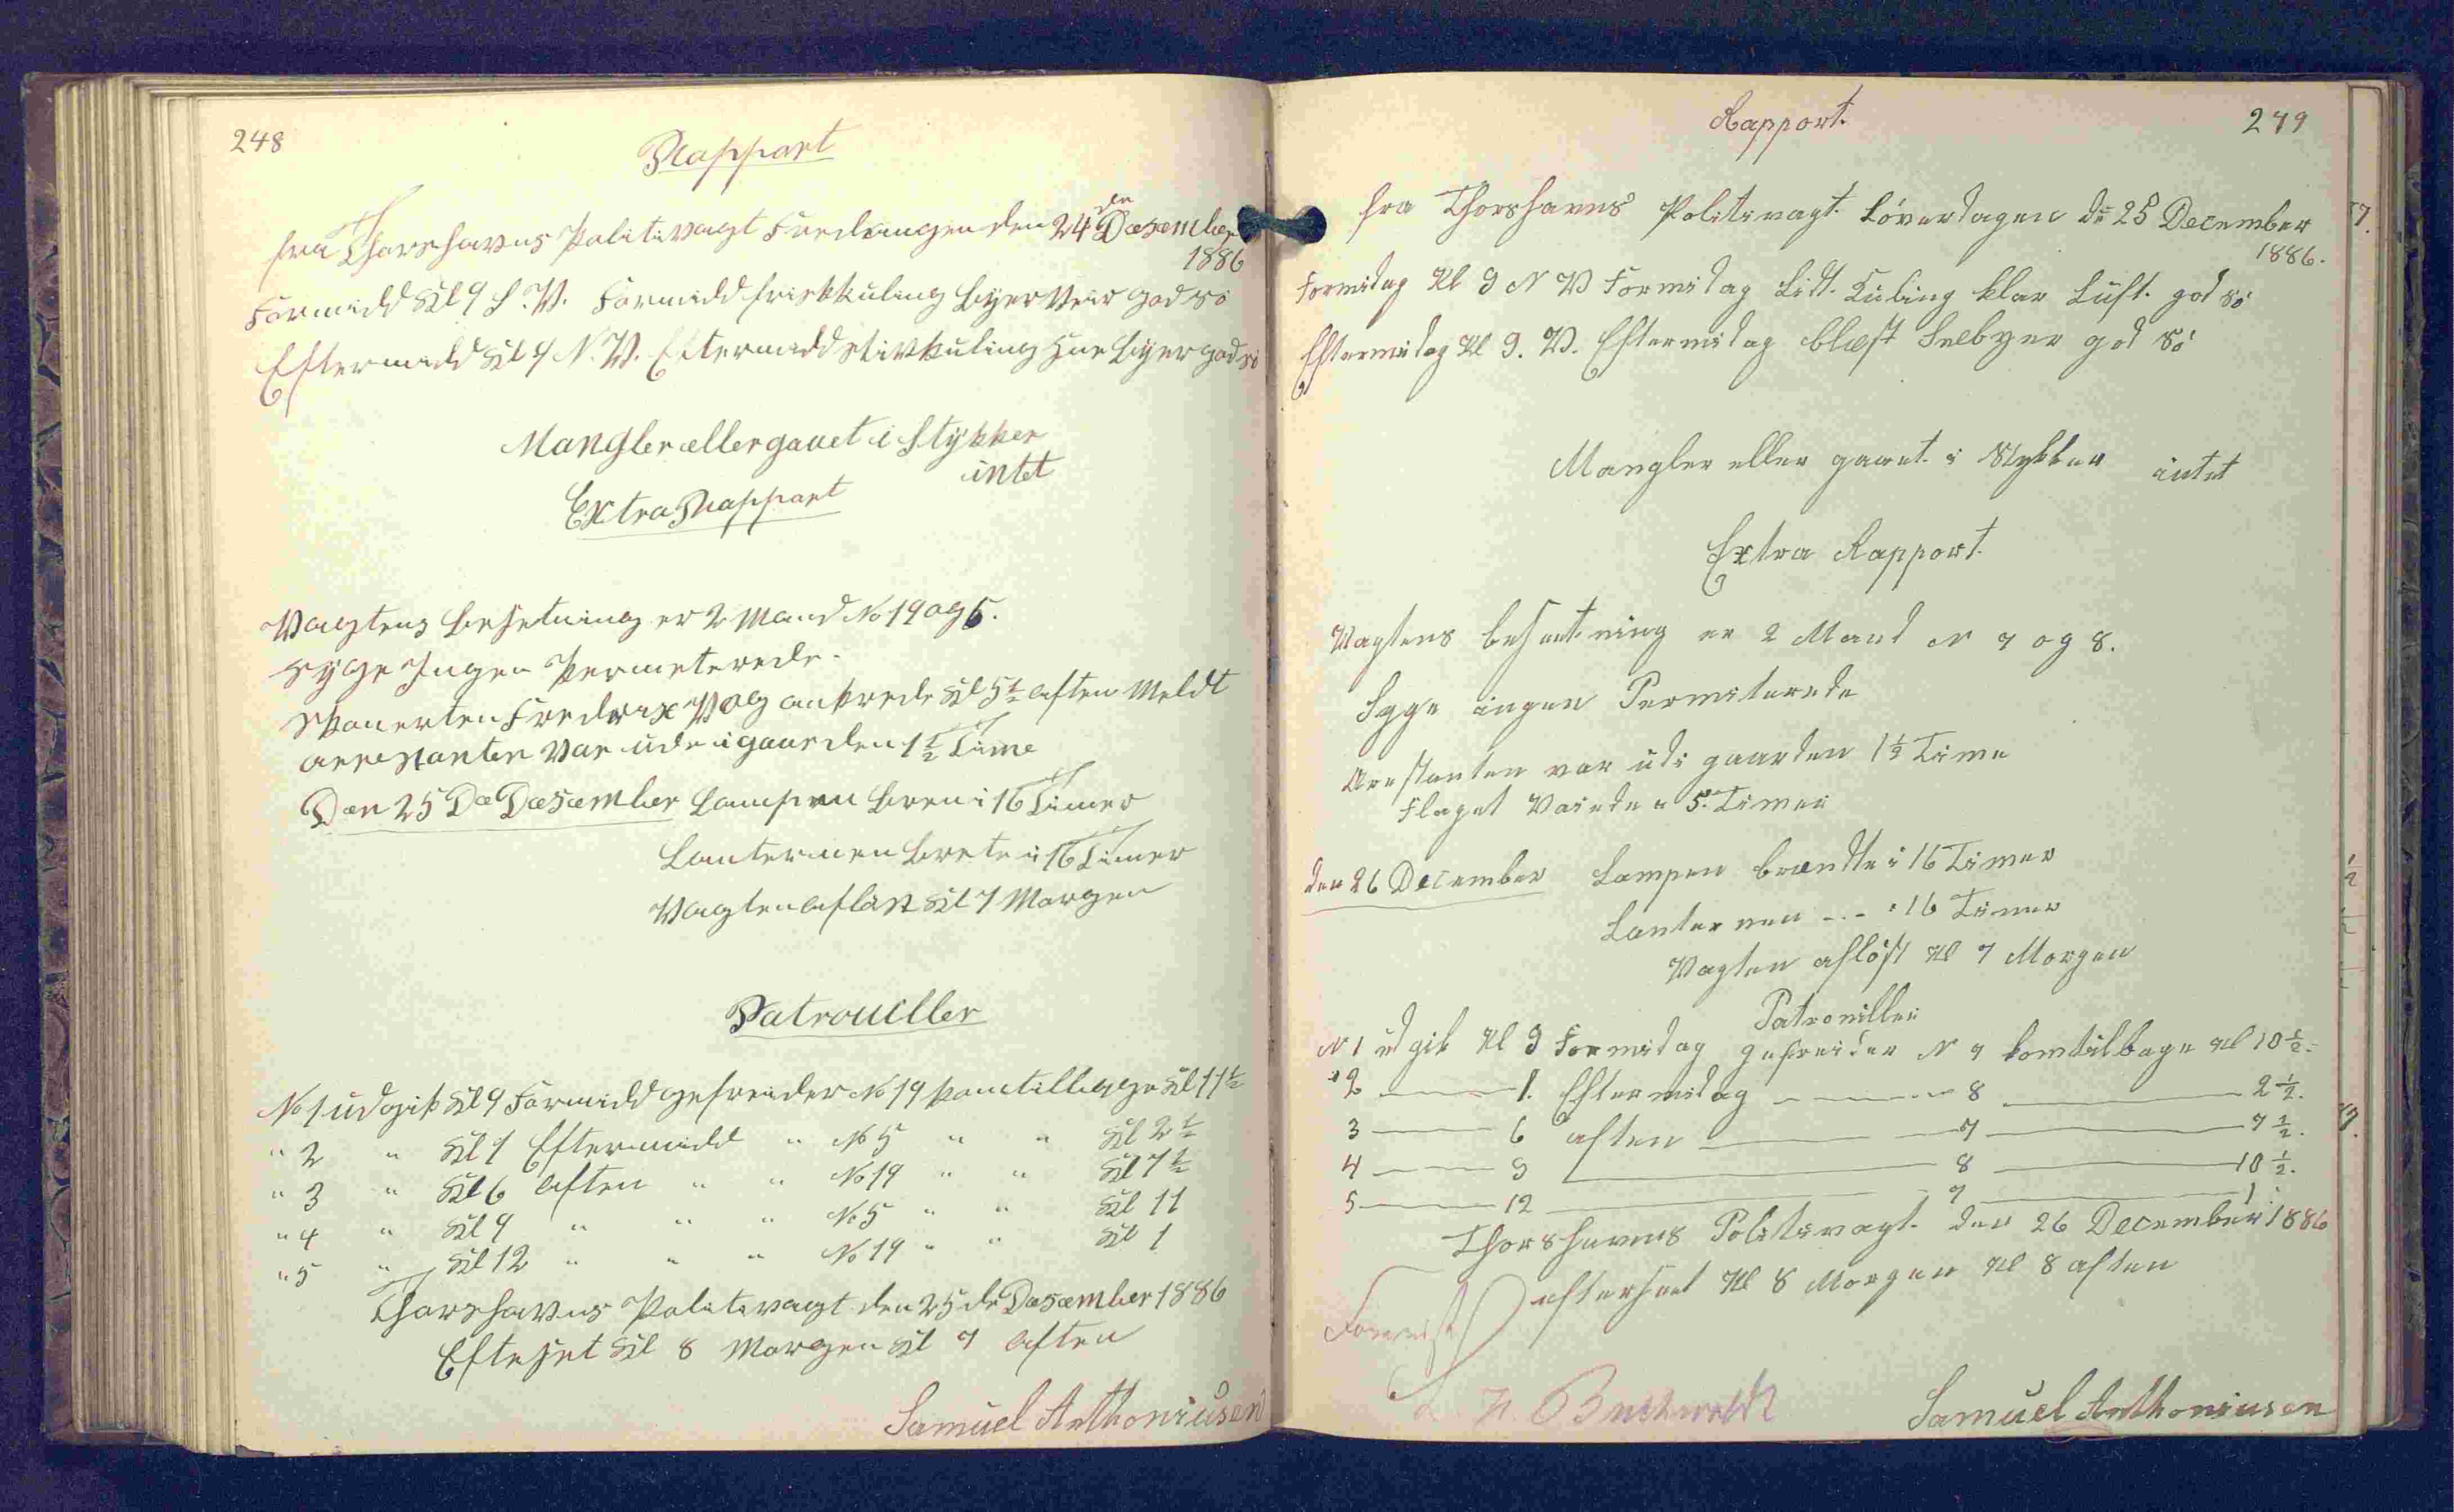 248
Rappart
fra Tharshavns Politivagt Fredangen den 24de Desember
1886
Formidd Kl 9 S.V. Formidd friskkuling byer Veir god sö
Eftermidd Kl 9 N.V. Eftermidd stivkuling Sne byer god sö
Mangler eller gaaet i Stykker
intet
Extra Rappart
Vagtens besetning er 2 Mand No 19 og 5.
Syge Ingen Permeterede.
Skonerten Fredrix ankrede Kl 5½ aften Meldt
arrestanten Var ude i gaarden 1½ Time
Den 25 De Desember Lampen bren i 16 Timer
Lanternen brente i 16 Timer
Vagten aflöst Kl 7 Morgen
Patrouiller
No 1 udgik Kl 9 Formidd gefreider No 19 kom tilbage Kl 11½
" 2 " Kl 1 Eftermidd " No 5 " " Kl 2½
" 3 " Kl 6 aften " " No 19 " " Kl 7½
" 4 " Kl 9 " " " No 5 " " Kl 11
" 5 " Kl 12 " " " No 19 " " Kl 1
Tharshavns Politivagt den 25 de Desember 1886
Efteset Kl 8 Morgen Kl 7 aften
Samuel Anthoniusen
Rapport.
249
fra Thorshavns Politivagt. Löverdagen d: 25 December
1886.
Formidag Kl 9 N V Formidag Lidt. Kuling klar Luft. god sö
Eftermidag Kl 9. V. Eftermidag blæst Seebyer god sö
Mangler eller gaaet. i Stykker intet
Extra Rapport.
Vagtens besætning er 2 Mand N 7 og 8.
Syge ingen Permiterede
Arestanten var udi gaarden 1½ Time
Flaget Vaiede i 5. Timer
den 26 December Lampen brændte i 16 Timer
Lanternen - . - i 16 Timer
Vagten aflöst Kl 7 Morgen
Patrouiller
N 1 udgik Kl 9 Formidag gefreider N 7 kom tilbage Kl 10½.
" 2 — 1. Eftermidag — 8 — 2½.
3 — 6 aften — 7 — 7½.
4 — 9 — 8 — 10½.
5 — 12 — 7 — 1.
Thorshavns Politivagt. den 26 December 1886
efterseet Kl 8 Morgen Kl 8 aften
Forevist
Buchwaldt
Samuel Anthoniusen